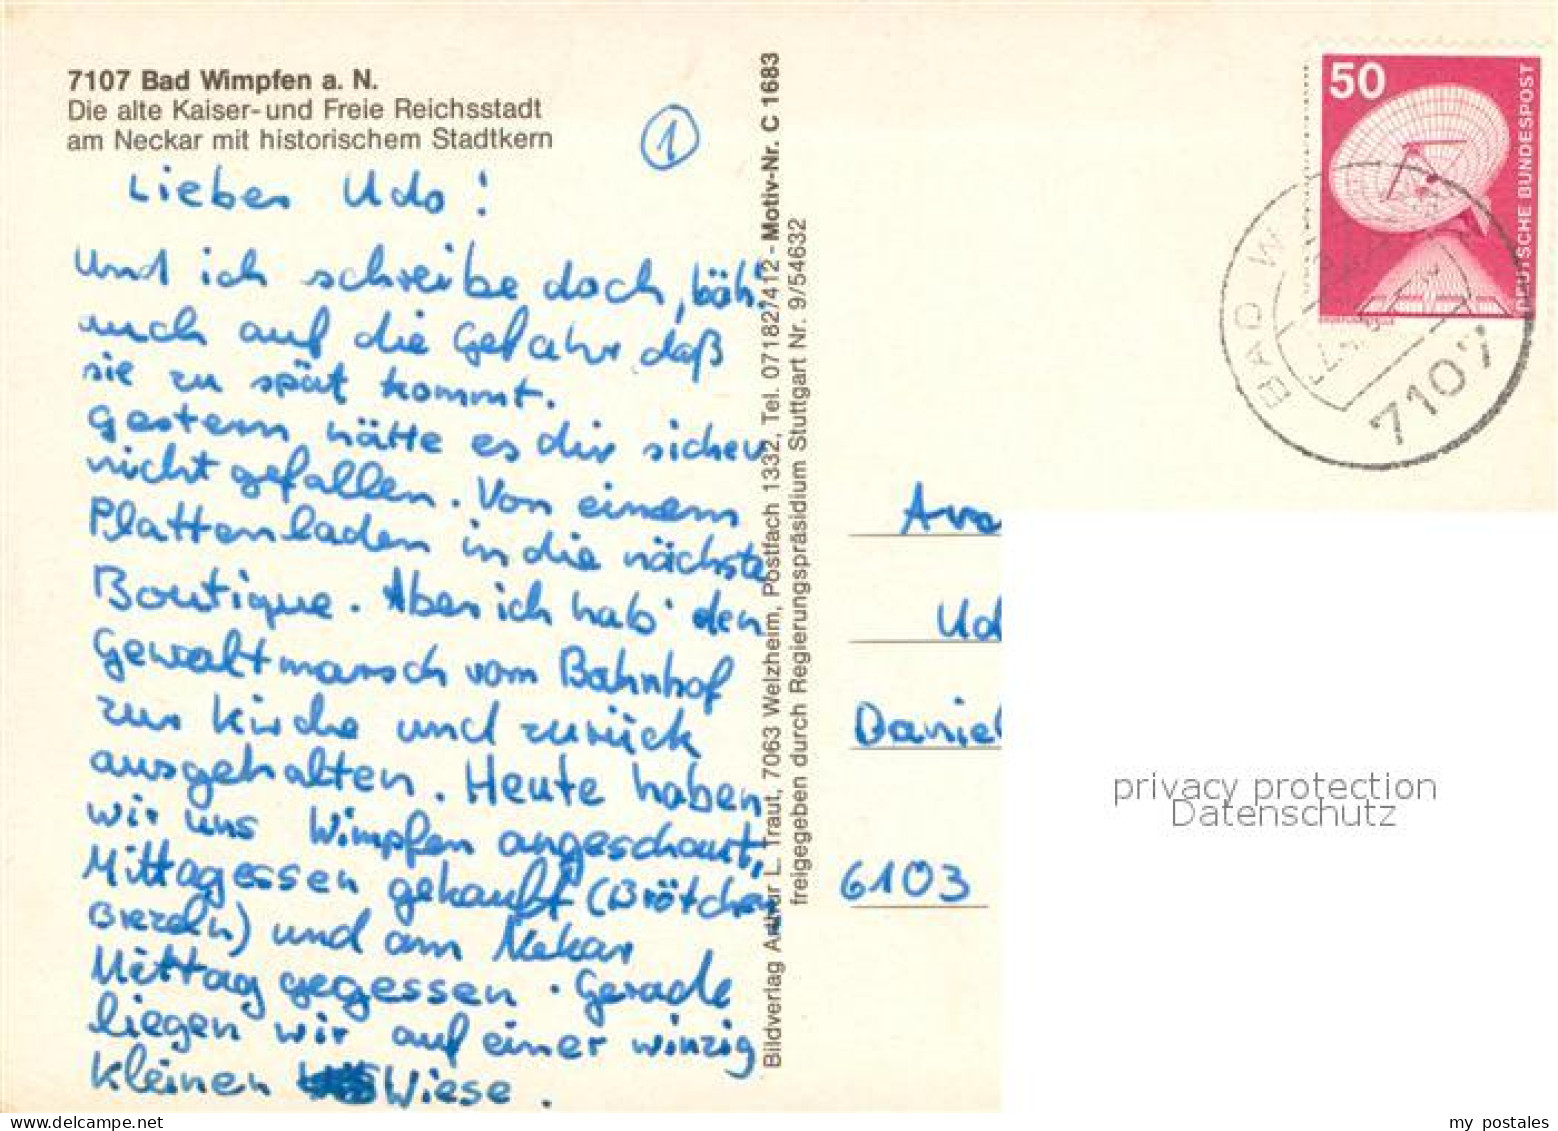 7107 Bad Wimpfen a. N.
Die alte Kaiser- und Freie Reichsstadt
am Neckar mit historischem Stadtkern
1
Lieber Udo!
Und ich schreibe doch, "böh"
auch auf die Gefahr daß
sie zu spät kommt.
Gestern hätte es dir sicher
nicht gefallen. Von einem
Plattenladen in die nächste
Boutique. Aber ich hab' den
Gewaltmarsch vom Bahnhof
zur Kirche und zurück
ausgehalten. Heute haben
wir uns Wimpfen angeschaut,
Mittagessen gekauft (Brötchen
Brezeln) und am Nekar
Mittag gegessen. Gerade
liegen wir auf einer winzig
kleinen Wiese.
Bildverlag Arthur L. Traut, 7063 Welzheim, Postfach 1332, Tel. 07182/7412 - Motiv-Nr. C 1683
freigegeben durch Regierungspräsidium Stuttgart Nr. 9/54632
50
DEUTSCHE BUNDESPOST
BAD W
7107
Daniel
6103
privacy protection
Datenschutz
my postales